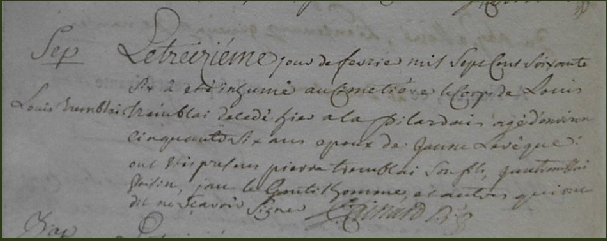 Sep
Le treizieme jour de fevrie mil Sept Cent Soixante
Six a eté inhumé au Cemetiere le Corps de Louis
Louis tremblai tremblai decedé hier a la pilardais agé denviron
cinquante Six ans epoux de Jeanne Levêque :
ont eté presens pierre tremblai Son fils, jan tremblai
jan le Gentilhomme, et autres qui ont
dit ne Sçavoir Signe
Bap